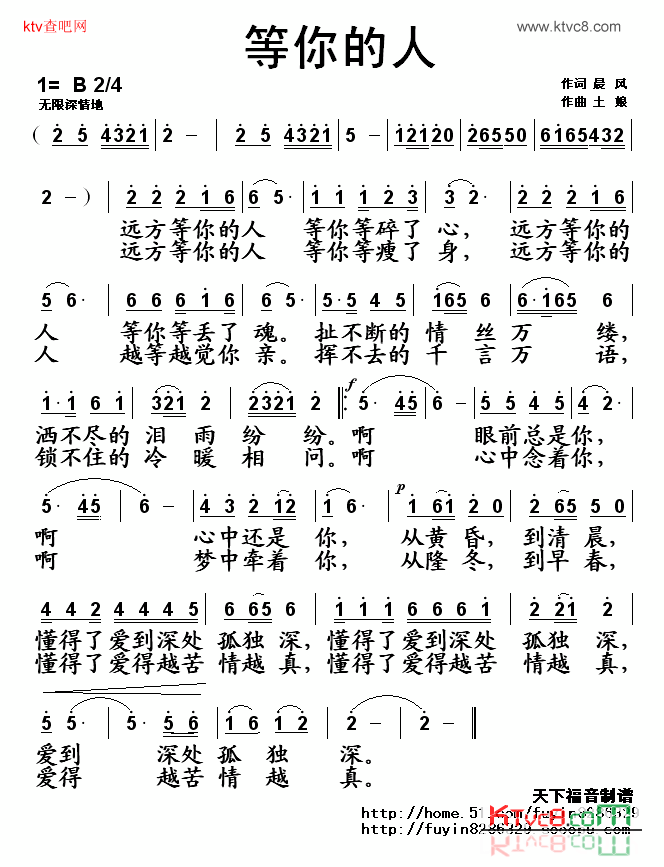 ktv查吧网
www.ktvc8.com
等你的人
1= B 2/4
作词 晨 风
无限深情地
作曲 土 娘
( 2 5 4321 | 2 - | 2 5 4321 | 5 - | 12120 | 26550 | 6165432 |
2 - ) | 2 2 2 1 6 | 6 5· | 1 1 1 2 3 | 3 2· | 2 2 2 1 6 |
远方等你的人 等你等碎了心， 远方等你的
远方等你的人 等你等瘦了身， 远方等你的
5 6· | 6 6 6 1 6 | 3 5· | 5·5 4 5 | 165 6 | 6·165 6 |
人 等你等丢了魂。 扯不断的 情 丝 万 缕，
人 越等越觉你亲。 挥不去的 千 言 万 语，
f
1·1 6 1 | 321 2 | 2321 2 | 5· 45 | 6 - | 5 5 4 5 | 4 2· |
洒不尽的 泪 雨 纷 纷。啊 眼前总是你，
锁不住的 冷 暖 相 问。啊 心中念着你，
p
5· 45 | 6 - | 4 3 2 12 | 2 - | 1 61 2 0 | 2 65 5 0 |
啊 心中还是 你， 从黄 昏， 到清 晨，
啊 梦中牵着 你， 从隆 冬， 到早 春，
4 4 2 4 4 4 5 | 6 65 6 | 1 1 1 6 6 6 1 | 2 21 2 |
懂得了爱到深处 孤独 深， 懂得了爱到深处 孤独 深，
懂得了爱得越苦 情越 真， 懂得了爱得越苦 情越 真，
5 5· | 5· 5 6 | 1 6 1 2 | 2 - | 2 - ‖
爱到 深处 孤 独 深。
爱得 越苦 情 越 真。
天下福音制谱